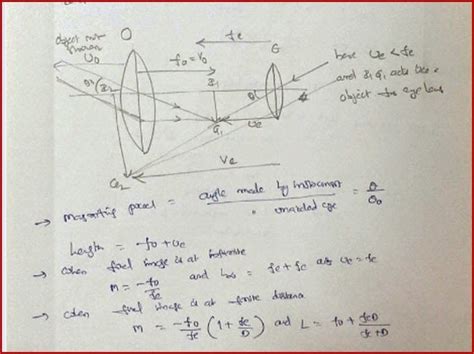 object not
shown
U₀
O
fe
f₀ = V₀
E
B₁
A₁
ue
Ve
here ue < fe
and B₁ A₁ acts like a
object for eye lens
→ magnifying power = angle made by instrument / unaided eye = θ/θ₀
Length = -f₀ + ue
→ when final image is at infinite
M = -f₀/fe and L∞ = f₀ + fe as ue = fe
→ when final image is at finite distance
M = -f₀/fe (1 + fe/D) and L = f₀ + feD/fe + D